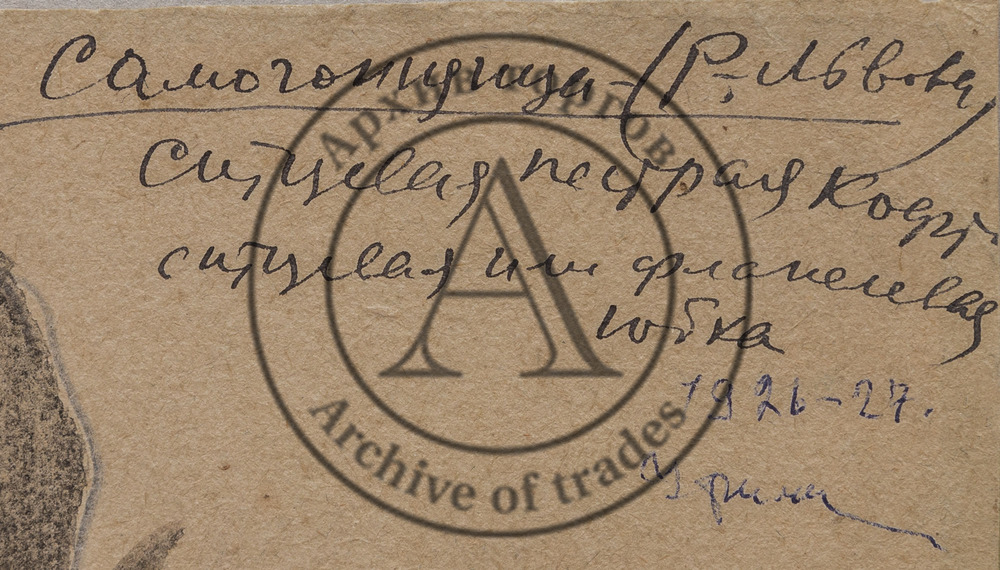 Самогонщица - (Р. Львова)
ситцевая пестрая кофт.
ситцевая или фланелевая
юбка
1926-27.
Архив торгов
Archive of trades